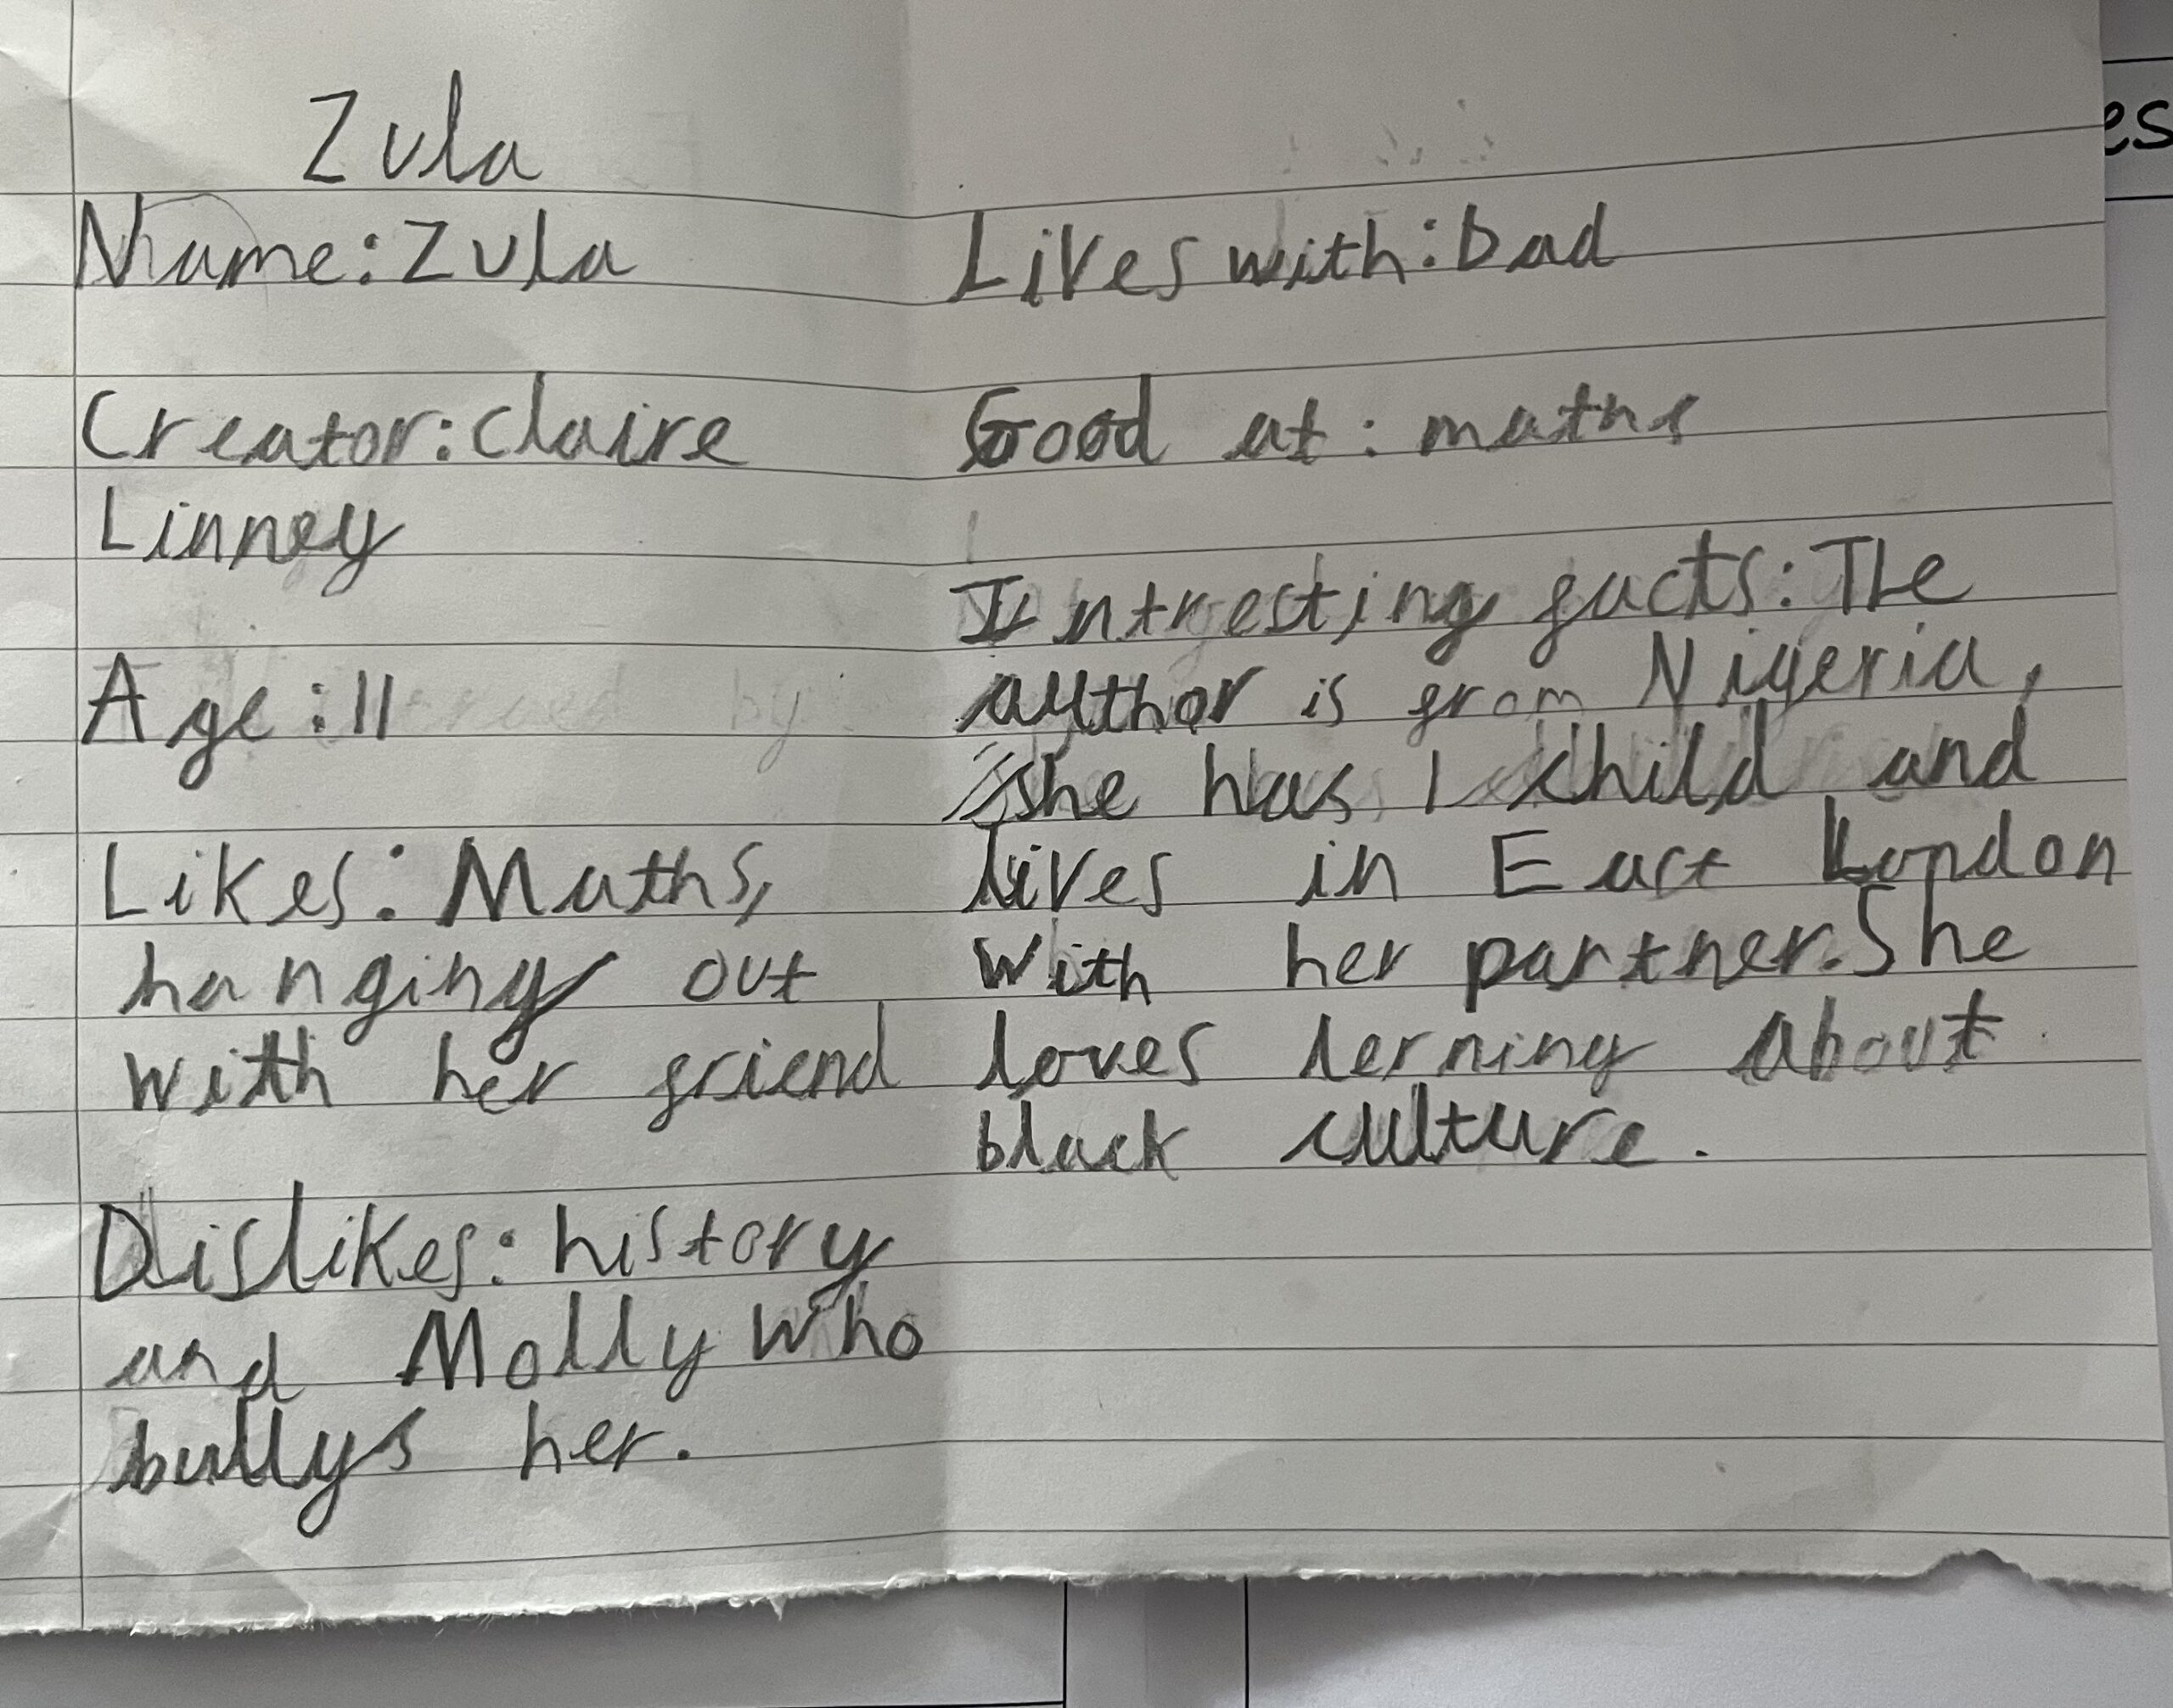 Zula
Name: Zula
Creator: Claire
Linney
Age: 11
Likes: Maths,
hanging out
with her friend
Dislikes: history
and Molly who
bullys her.
Lives with: Dad
Good at: maths
Intresting facts: The
author is from Nigeria,
she has 1 child and
lives in East London
with her partner. She
loves lerning about
black culture.
es